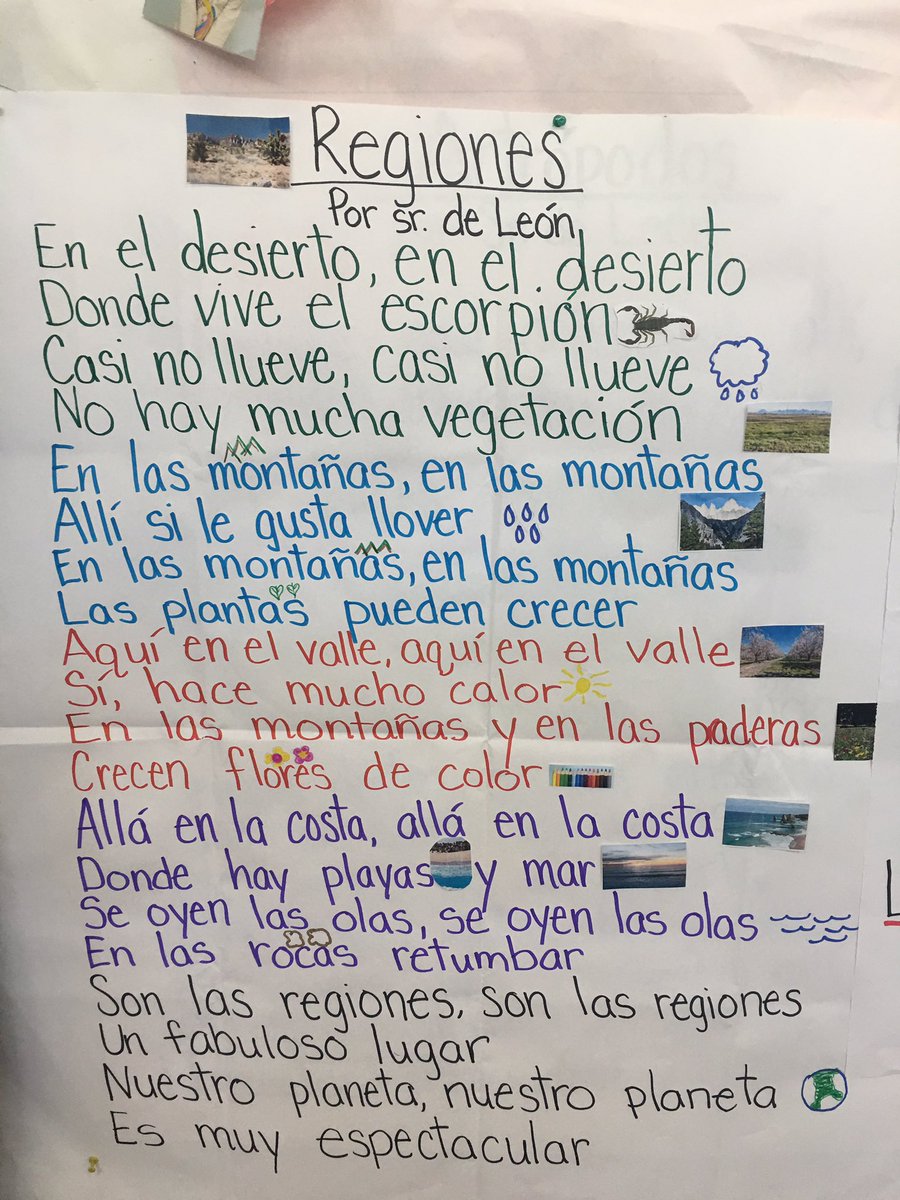 Regiones
Por sr. de León
En el desierto, en el. desierto
Donde vive el escorpión
Casi no llueve, casi no llueve
No hay mucha vegetación
En las montañas, en las montañas
Allí si le gusta llover
En las montañas, en las montañas
Las plantas pueden crecer
Aquí en el valle, aquí en el valle
Sí, hace mucho calor
En las montañas y en las praderas
Crecen flores de color
Allá en la costa, allá en la costa
Donde hay playas y mar
Se oyen las olas, se oyen las olas
En las rocas retumbar
Son las regiones, son las regiones
Un fabuloso lugar
Nuestro planeta, nuestro planeta
Es muy espectacular